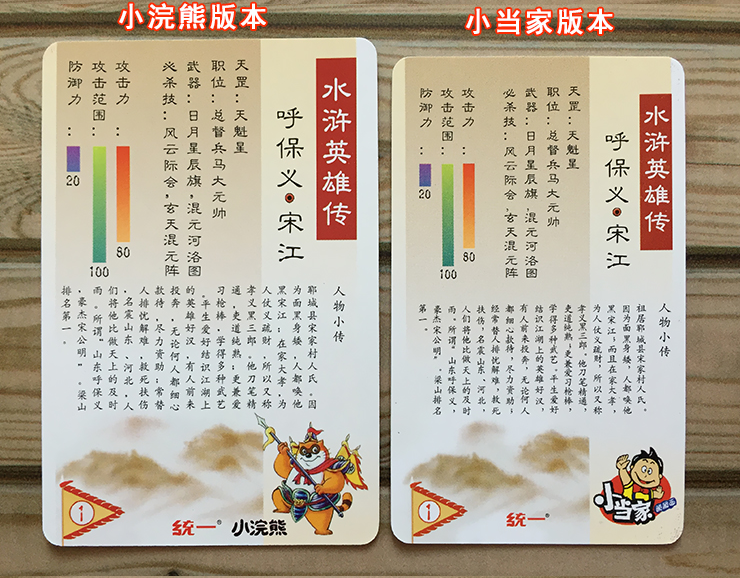 小浣熊版本
水浒英雄传
呼保义·宋江
天罡：天魁星
职位：总督兵马大元帅
武器：日月星辰旗，混元河洛图
必杀技：风云际会，玄天混元阵
攻击力：80
攻击范围：100
防御力：20
人物小传
郓城县宋家村人氏。因
为面黑身矮，人都唤他
黑宋江；在家大孝，为
人仗义疏财，所以又称
孝义黑三郎。他刀笔精
通，吏道纯熟；更兼爱
习枪棒，学得多种武艺
。平生爱好结识江湖上
的英雄好汉，有人前来
投奔，无论何人都细心
款待，尽力资助；常替
人排忧解难，救死扶伤
，名震山东、河北，人
们将他比做天上的及时
雨。所谓"山东呼保义
，豪杰宋公明"。梁山
排名第一。
1
统一® 小浣熊
小当家版本
水浒英雄传
呼保义·宋江
天罡：天魁星
职位：总督兵马大元帅
武器：日月星辰旗，混元河洛图
必杀技：风云际会，玄天混元阵
攻击力：80
攻击范围：100
防御力：20
人物小传
祖居郓城县宋家村人氏。
因为面黑身矮，人都唤他
黑宋江；而且在家大孝，
为人仗义疏财，所以又称
孝义黑三郎。他刀笔精通，
吏道纯熟；更兼爱习枪棒，
学得多种武艺。平生爱好
结识江湖上的英雄好汉，
有人前来投奔，无论何人
都细心款待，尽力资助；
经常替人排忧解难，救死
扶伤，名震山东、河北，
人们将他比做天上的及时
雨。所谓"山东呼保义，
豪杰宋公明"。梁山排名
第一。
1
统一®
小当家